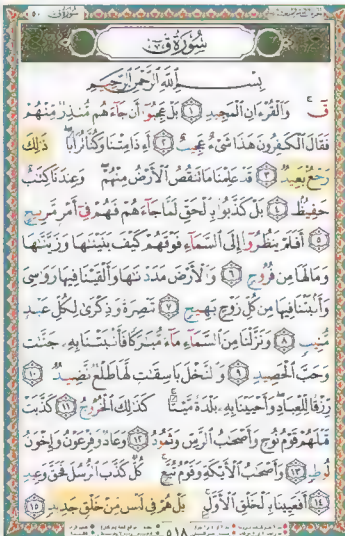 سُورَةُ ق
بِسْمِ ٱللَّهِ ٱلرَّحْمَـٰنِ ٱلرَّحِيمِ
قٓ ۚ وَٱلْقُرْءَانِ ٱلْمَجِيدِ ١ بَلْ عَجِبُوٓا۟ أَن جَآءَهُم مُّنذِرٌ مِّنْهُمْ
فَقَالَ ٱلْكَـٰفِرُونَ هَـٰذَا شَىْءٌ عَجِيبٌ ٢ أَءِذَا مِتْنَا وَكُنَّا تُرَابًا ۖ ذَٰلِكَ
رَجْعٌۢ بَعِيدٌ ٣ قَدْ عَلِمْنَا مَا تَنقُصُ ٱلْأَرْضُ مِنْهُمْ ۖ وَعِندَنَا كِتَـٰبٌ
حَفِيظٌۢ ٤ بَلْ كَذَّبُوا۟ بِٱلْحَقِّ لَمَّا جَآءَهُمْ فَهُمْ فِىٓ أَمْرٍ مَّرِيجٍ
٥ أَفَلَمْ يَنظُرُوٓا۟ إِلَى ٱلسَّمَآءِ فَوْقَهُمْ كَيْفَ بَنَيْنَـٰهَا وَزَيَّنَّـٰهَا
وَمَا لَهَا مِن فُرُوجٍ ٦ وَٱلْأَرْضَ مَدَدْنَـٰهَا وَأَلْقَيْنَا فِيهَا رَوَٰسِىَ
وَأَنۢبَتْنَا فِيهَا مِن كُلِّ زَوْجٍۭ بَهِيجٍ ٧ تَبْصِرَةً وَذِكْرَىٰ لِكُلِّ عَبْدٍ
مُّنِيبٍ ٨ وَنَزَّلْنَا مِنَ ٱلسَّمَآءِ مَآءً مُّبَـٰرَكًا فَأَنۢبَتْنَا بِهِۦ جَنَّـٰتٍ
وَحَبَّ ٱلْحَصِيدِ ٩ وَٱلنَّخْلَ بَاسِقَـٰتٍ لَّهَا طَلْعٌ نَّضِيدٌ ١٠
رِّزْقًا لِّلْعِبَادِ ۖ وَأَحْيَيْنَا بِهِۦ بَلْدَةً مَّيْتًا ۚ كَذَٰلِكَ ٱلْخُرُوجُ ١١ كَذَّبَتْ
قَبْلَهُمْ قَوْمُ نُوحٍ وَأَصْحَـٰبُ ٱلرَّسِّ وَثَمُودُ ١٢ وَعَادٌ وَفِرْعَوْنُ وَإِخْوَٰنُ
لُوطٍ ١٣ وَأَصْحَـٰبُ ٱلْأَيْكَةِ وَقَوْمُ تُبَّعٍ ۚ كُلٌّ كَذَّبَ ٱلرُّسُلَ فَحَقَّ وَعِيدِ
١٤ أَفَعَيِينَا بِٱلْخَلْقِ ٱلْأَوَّلِ ۚ بَلْ هُمْ فِى لَبْسٍ مِّنْ خَلْقٍ جَدِيدٍ ١٥
٥١٨